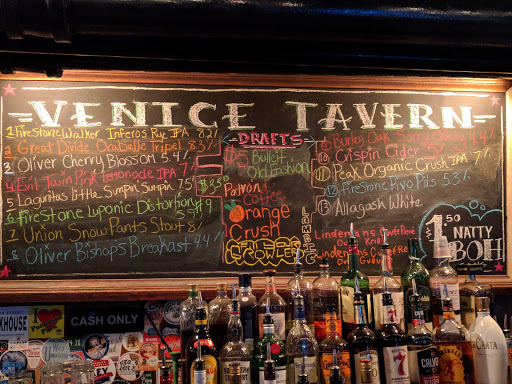 VENICE TAVERN
DRAFTS
1 FireStone Walker Inferos Rye IPA 8.2%
2 Great Divide Orabelle Tripel 8.3%
3 Oliver Cherry Blossom 5.4%
4 Evil Twin Pink Lemonade IPA 7%
5 Lagunitas little Sumpin Sumpin 7.5%
6 FireStone Luponic Distortion
7 Union Snow Pants Stout 8%
8 Oliver Bishops Breakfast 4.4%
$5 Bulleit
Old Fashion
Patron
Coffee
Orange
Crush
Growler
Burley Oak
10 Crispin Cider 5%
11 Peak Organic Crush IPA 7%
12 FireStone Pivo Pils 5.3%
13 Allagash White
Lindemans Cuvée René
Lindemans Cuvée René
1.50
NATTY
BOH
I
CASH ONLY